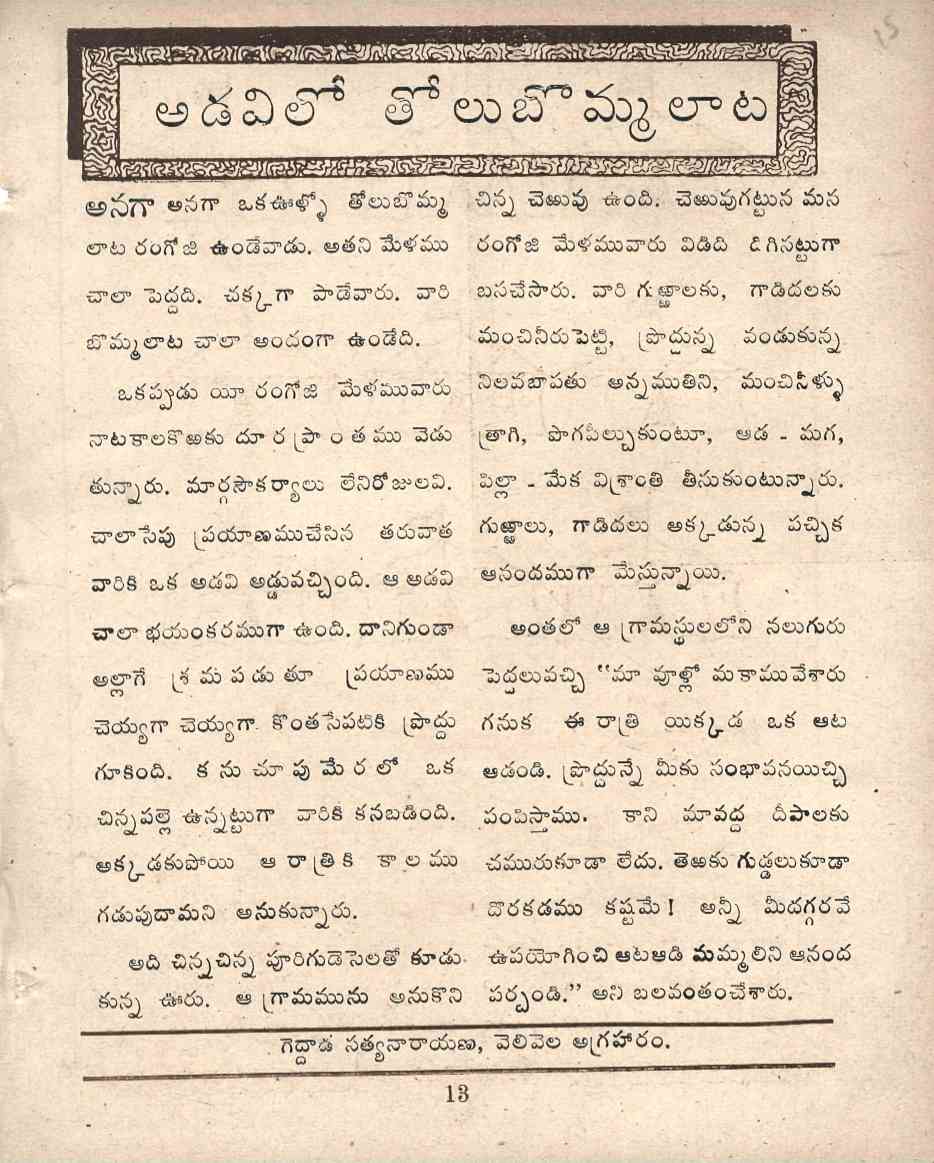 అడవిలో తోలుబొమ్మలాట
అనగా అనగా ఒకఊళ్ళో తోలుబొమ్మ
లాట రంగోజి ఉండేవాడు. అతని మేళము
చాలా పెద్దది. చక్కగా పాడేవారు. వారి
బొమ్మలాట చాలా అందంగా ఉండేది.
ఒకప్పుడు యీ రంగోజి మేళమువారు
నాటకాలకొఱకు దూర ప్రాంతము వెడు
తున్నారు. మార్గసౌకర్యాలు లేనిరోజులవి.
చాలాసేపు ప్రయాణముచేసిన తరువాత
వారికి ఒక అడవి అడ్డువచ్చింది. ఆ అడవి
చాలా భయంకరముగా ఉంది. దానిగుండా
అల్లాగే శ్రమపడుతూ ప్రయాణము
చెయ్యగా చెయ్యగా. కొంతసేపటికి ప్రొద్దు
గూకింది. కనుచూపుమేరలో ఒక
చిన్నపల్లె ఉన్నట్టుగా వారికి కనబడింది.
అక్కడకుపోయి ఆ రాత్రికి కాలము
గడుపుదామని అనుకున్నారు.
అది చిన్నచిన్న పూరిగుడెసెలతో కూడు
కున్న ఊరు. ఆ గ్రామమును అనుకొని
చిన్న చెఱువు ఉంది. చెఱువుగట్టున మన
రంగోజి మేళమువారు విడిది దిగినట్టుగా
బసచేసారు. వారి గుఱ్ఱాలకు, గాడిదలకు
మంచినీరుపెట్టి, ప్రొద్దున్న వండుకున్న
నిలవబాపతు అన్నముతిని, మంచినీళ్ళు
త్రాగి, పొగపీల్చుకుంటూ, ఆడ - మగ,
పిల్లా - మేక విశ్రాంతి తీసుకుంటున్నారు.
గుఱ్ఱాలు, గాడిదలు అక్కడున్న పచ్చిక
ఆనందముగా మేస్తున్నాయి.
అంతలో ఆ గ్రామస్థులలోని నలుగురు
పెద్దలువచ్చి “మా వూళ్లో మకామువేశారు
గనుక ఈ రాత్రి యిక్కడ ఒక ఆట
ఆడండి. ప్రొద్దున్నే మీకు సంభావనయిచ్చి
పంపిస్తాము. కాని మావద్ద దీపాలకు
చమురుకూడా లేదు. తెఱకు గుడ్డలుకూడా
దొరకడము కష్టమే! అన్నీ మీదగ్గరవే
ఉపయోగించి ఆటఆడి మమ్మలిని ఆనంద
పర్చండి.” అని బలవంతంచేశారు.
గెద్దాడ సత్యనారాయణ, వెలివెల అగ్రహారం.
13
15